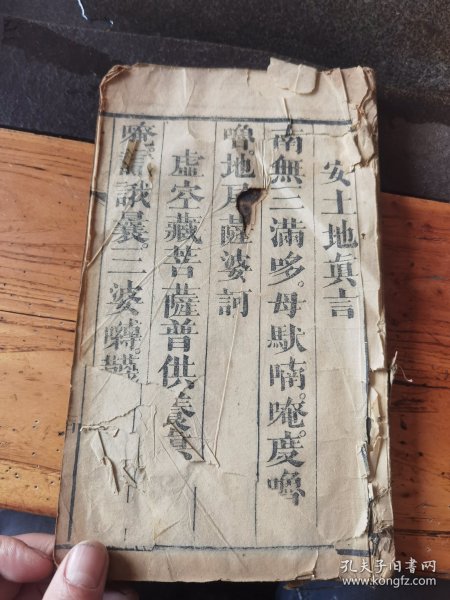 安土地真言
南無三滿哆。母馱喃。唵。度嚕
嚕。地尾薩婆訶
虛空藏菩薩普供養真
唵。誐曩三婆嚩韈
孔夫子旧书网
www.kongfz.com